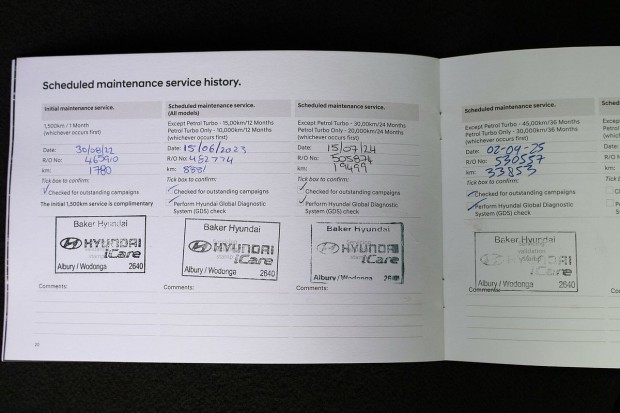 Scheduled maintenance service history.
Initial maintenance service.
1,500km / 1 Month
(whichever occurs first)
Date: 30/08/22
R/O No: 465910
km: 1780
Tick box to confirm:
Checked for outstanding campaigns
The initial 1,500km service is complimentary
Baker Hyundai
HYUNDAI
iCare
Albury / Wodonga 2640
Comments:
Scheduled maintenance service.
(All models)
Except Petrol Turbo - 15,000km/12 Months
Petrol Turbo Only - 10,000km/12 Months
(whichever occurs first)
Date: 15/06/2023
R/O No: 482774
km: 8881
Tick box to confirm:
Checked for outstanding campaigns
Perform Hyundai Global Diagnostic
System (GDS) check
Baker Hyundai
HYUNDAI
stamp
iCare
Albury / Wodonga 2640
Comments:
Scheduled maintenance service.
Except Petrol Turbo - 30,000km/24 Months
Petrol Turbo Only - 20,000km/24 Months
(whichever occurs first)
Date: 15/07/24
R/O No: 505874
km: 19499
Tick box to confirm:
Checked for outstanding campaigns
Perform Hyundai Global Diagnostic
System (GDS) check
Baker Hyundai
HYUNDAI
stamp
iCare
Albury / Wodonga
Comments:
20
Scheduled maintenance service.
Except Petrol Turbo - 45,000km/36 Months
Petrol Turbo Only - 30,000km/36 Months
(whichever occurs first)
Date: 02-04-25
R/O No: 530557
km: 33853
Tick box to confirm:
Checked for outstanding campaigns
Perform Hyundai Global Diagnostic
System (GDS) check
Baker Hyundai
validation
HYUNDAI
iCare
Albury / Wodonga 2640
Comments:
Sched
Date:
R/O N
km:
Tick b